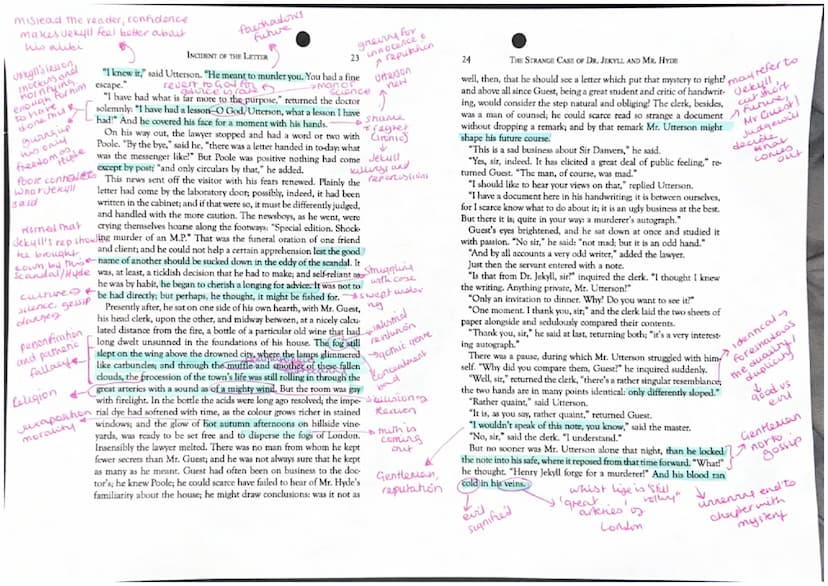 mislead the reader, confidence
makes Jekyll feel better about
his alibi
foreshadows
future
INCIDENT OF THE LETTER
23
"I knew it," said Utterson. "He meant to murder you. You had a fine
escape."
revert to God for
man of
science
"I have had what is far more to the purpose," returned the doctor
solemnly: "I have had a lesson—O God, Utterson, what a lesson I have
had!" And he covered his face for a moment with his hands.
On his way out, the lawyer stopped and had a word or two with
Poole. "By the bye," said he, "there was a letter handed in today: what
was the messenger like?" But Poole was positive nothing had come
except by post; "and only circulars by that," he added.
This news sent off the visitor with his fears renewed. Plainly the
letter had come by the laboratory door; possibly, indeed, it had been
written in the cabinet; and if that were so, it must be differently judged,
and handled with the more caution. The newsboys, as he went, were
crying themselves hoarse along the footways: "Special edition. Shock-
ing murder of an M.P." That was the funeral oration of one friend
and client; and he could not help a certain apprehension lest the good
name of another should be sucked down in the eddy of the scandal. It
was, at least, a ticklish decision that he had to make; and self-reliant as
he was by habit, he began to cherish a longing for advice. It was not to
be had directly; but perhaps, he thought, it might be fished for.
Presently after, he sat on one side of his own hearth, with Mr. Guest,
his head clerk, upon the other, and midway between, at a nicely calcu-
lated distance from the fire, a bottle of a particular old wine that had
long dwelt unsunned in the foundations of his house. The fog still
slept on the wing above the drowned city, where the lamps glimmered
like carbuncles; and through the muffle and smother of these fallen
clouds, the procession of the town's life was still rolling in through the
great arteries with a sound as of a mighty wind. But the room was gay
with firelight. In the bottle the acids were long ago resolved; the impe-
rial dye had softened with time, as the colour grows richer in stained
windows; and the glow of hot autumn afternoons on hillside vine-
yards, was ready to be set free and to disperse the fogs of London.
Insensibly the lawyer melted. There was no man from whom he kept
fewer secrets than Mr. Guest; and he was not always sure that he kept
as many as he meant. Guest had often been on business to the doc-
tor's; he knew Poole; he could scarce have failed to hear of Mr. Hyde's
familiarity about the house; he might draw conclusions: was it not as
Jekyll's lesson
enough for him
to have
done this
Poole contradicts
what Jekyll
said
worried that
Jekyll's rep
brought
down by this
scandal/Hyde
culture
science, gossip
personification
and pathetic
fallacy
religion
juxtaposition
morality
innocence &
reputation
Utterson
shame
regret
(ironic)
Jekyll
struggling
with case
gothic genre
truth is
coming
out
Gentleman,
reputation
24
THE STRANGE CASE OF DR. JEKYLL AND MR. HYDE
well, then, that he should see a letter which put that mystery to right?
and above all since Guest, being a great student and critic of handwrit-
ing, would consider the step natural and obliging? The clerk, besides,
was a man of counsel; he could scarce read so strange a document
without dropping a remark; and by that remark Mr. Utterson might
shape his future course.
"This is a sad business about Sir Danvers," he said.
"Yes, sir, indeed. It has elicited a great deal of public feeling," re-
turned Guest. "The man, of course, was mad."
"I should like to hear your views on that," replied Utterson.
"I have a document here in his handwriting; it is between ourselves,
for I scarce know what to do about it; it is an ugly business at the best.
But there it is; quite in your way: a murderer's autograph."
Guest's eyes brightened, and he sat down at once and studied it
with passion. "No sir," he said: "not mad; but it is an odd hand."
"And by all accounts a very odd writer," added the lawyer.
Just then the servant entered with a note.
"Is that from Dr. Jekyll, sir?" inquired the clerk. "I thought I knew
the writing. Anything private, Mr. Utterson?"
"Only an invitation to dinner. Why? Do you want to see it?"
"One moment. I thank you, sir;" and the clerk laid the two sheets of
paper alongside and sedulously compared their contents.
"Thank you, sir," he said at last, returning both; "it's a very interest-
ing autograph."
There was a pause, during which Mr. Utterson struggled with him-
self. "Why did you compare them, Guest?" he inquired suddenly.
"Well, sir," returned the clerk, "there's a rather singular resemblance;
the two hands are in many points identical: only differently sloped."
"Rather quaint," said Utterson.
"It is, as you say, rather quaint," returned Guest.
"I wouldn't speak of this note, you know," said the master.
"No, sir," said the clerk. "I understand."
But no sooner was Mr. Utterson alone that night, than he locked
the note into his safe, where it reposed from that time forward. "What!"
he thought. "Henry Jekyll forge for a murderer!" And his blood ran
cold in his veins.
may refer to
Jekyll
or their
future,
Mr Guest
judge will
decide
what
comes
out
identical →
foreshadows
the duality/
duplicity
good vs
evil
Gentleman
not to
gossip
unnerving end to
chapter with
mystery
evil
signified
whilst life is 'still
'great
rolling'
arteries' of
London